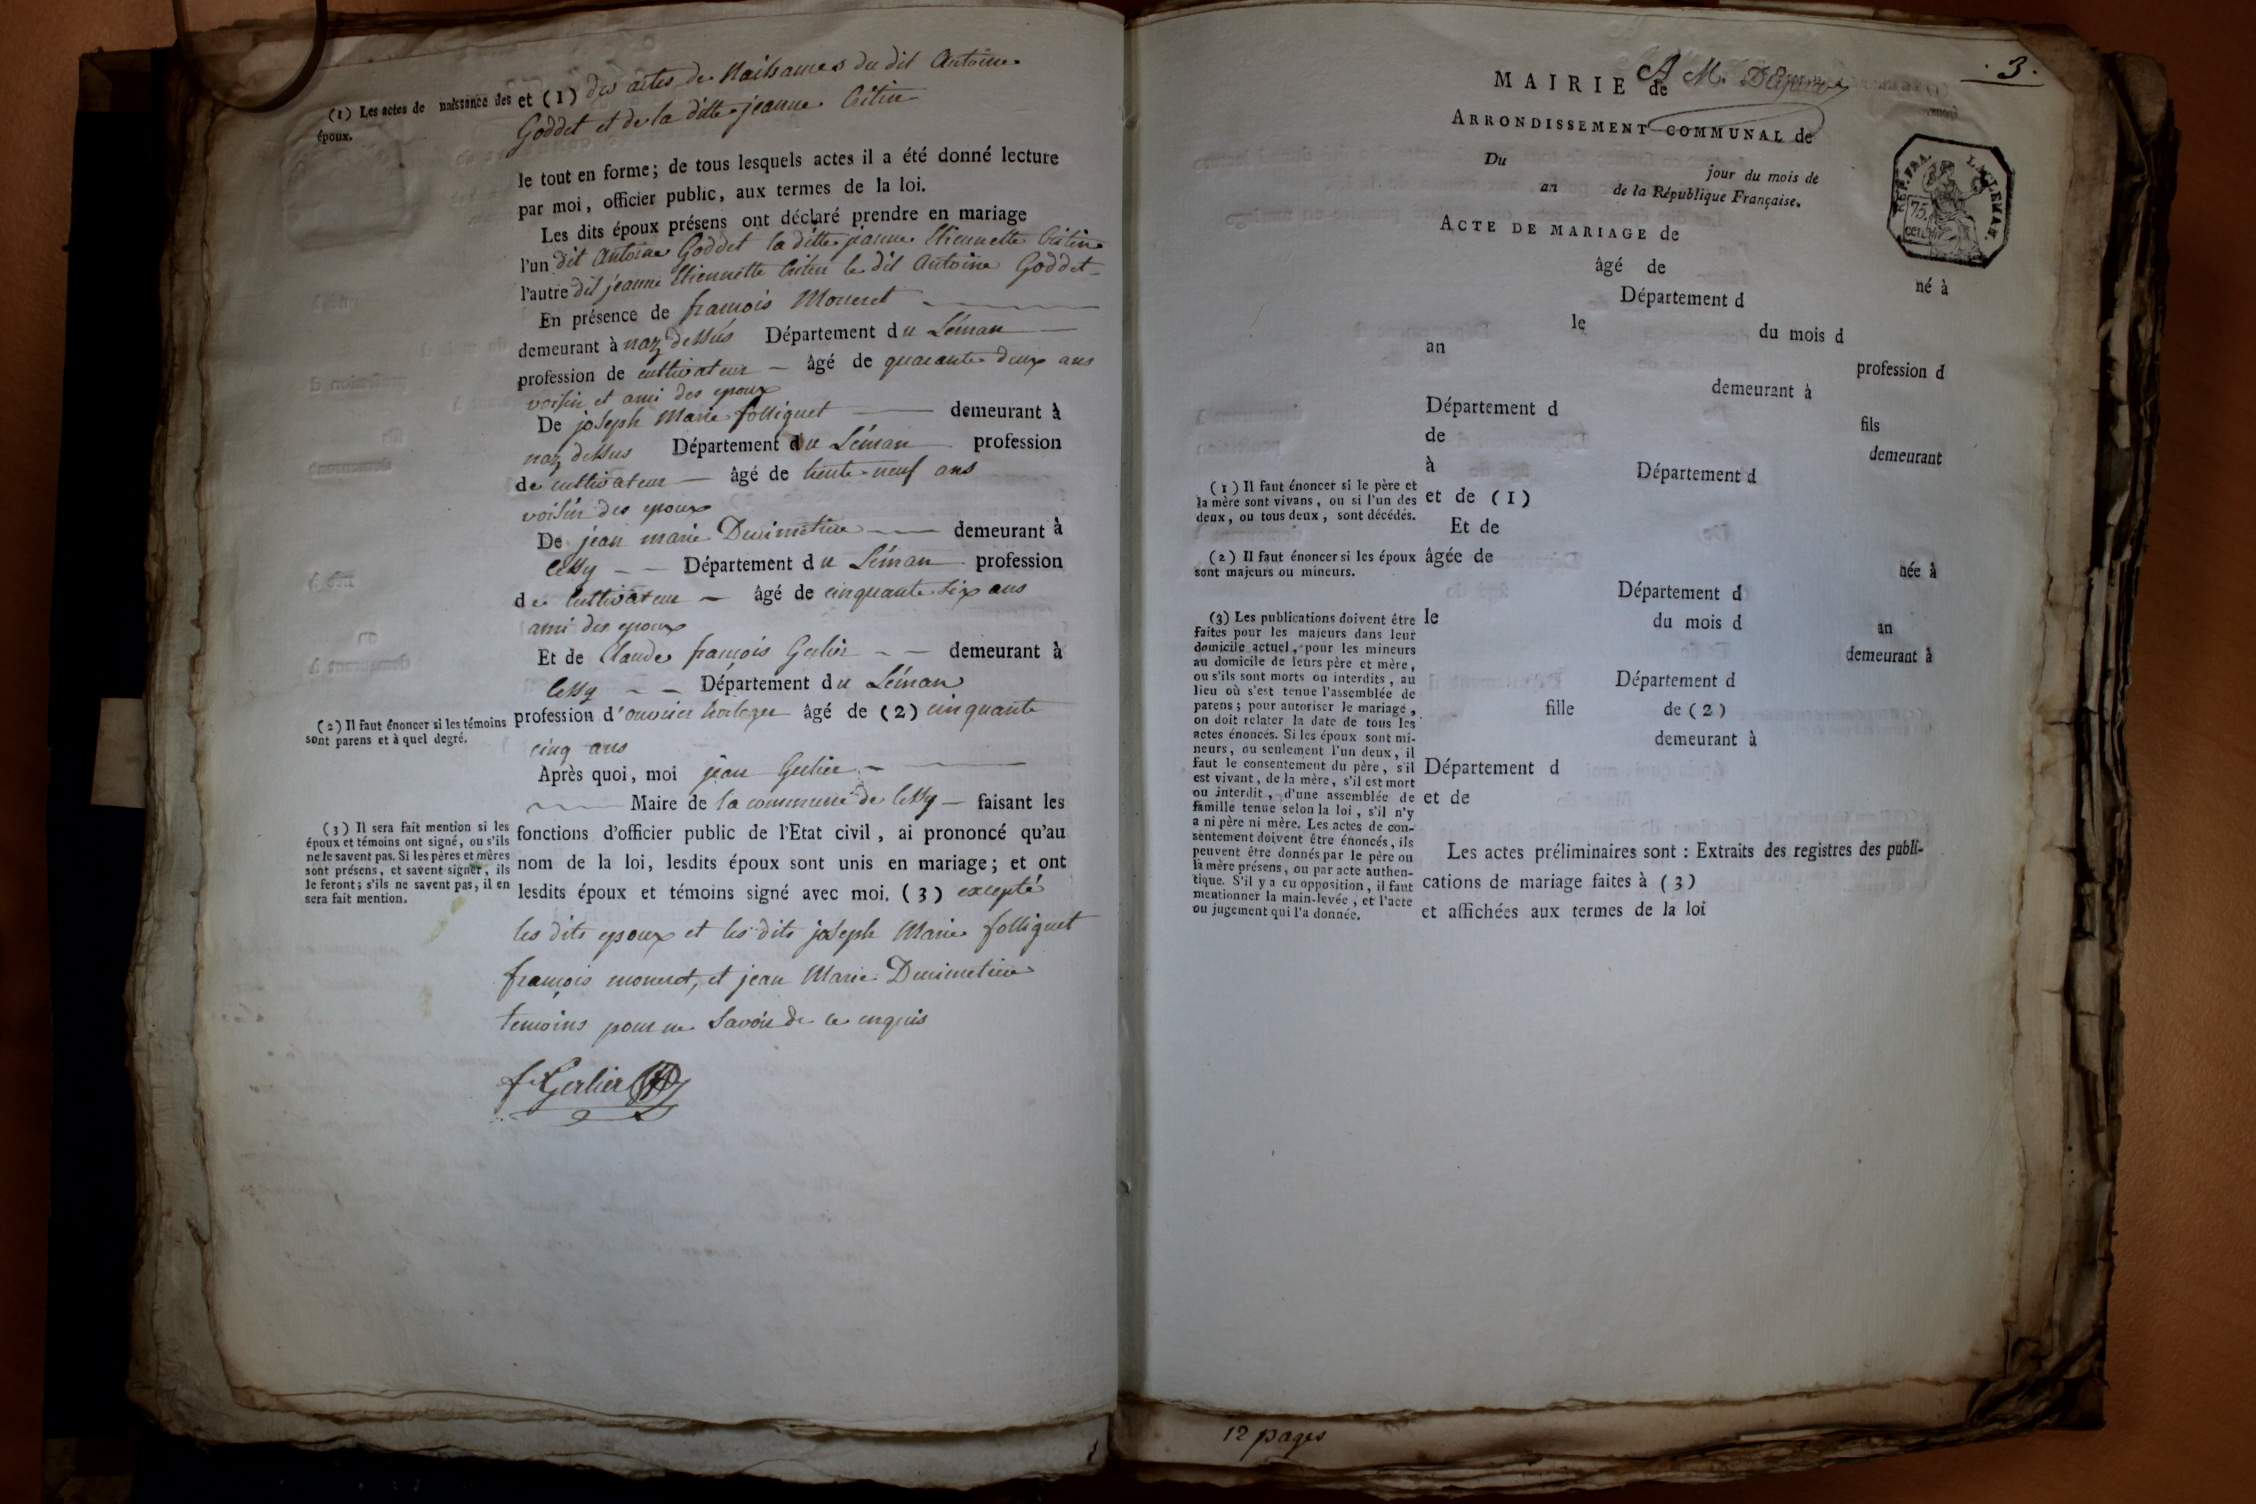 (1) Les actes de naissance des
époux.
et (1) des actes de Naissances du dit Antoine
Goddet et de la ditte jeanne
le tout en forme; de tous lesquels actes il a été donné lecture
par moi, officier public, aux termes de la loi.
Les dits époux présens ont déclaré prendre en mariage
l'un dit Antoine Goddet la ditte jeanne Etiennette
l'autre dit jeanne Etiennette le dit Antoine Goddet
En présence de françois Moneret
demeurant à naz dessus Département du Léman
profession de cultivateur âgé de quarante deux ans
voisin et ami des epoux
De joseph Marie folliguet demeurant à
naz dessus Département du Léman profession
de cultivateur âgé de trente neuf ans
voisin des epoux
De jean marie demeurant à
Cessy Département du Léman profession
de Cultivateur âgé de cinquante six ans
ami des epoux
Et de Claude françois Gerlier demeurant à
Cessy Département du Léman
profession d'ouvrier horloger âgé de (2) cinquante
cinq ans
(2) Il faut énoncer si les témoins
sont parens et à quel degré.
Après quoi, moi jean Gerlier
Maire de la commune de Cessy faisant les
fonctions d'officier public de l'Etat civil, ai prononcé qu'au
nom de la loi, lesdits époux sont unis en mariage; et ont
lesdits époux et témoins signé avec moi. (3) excepté
les dits epoux et les dits joseph Marie folliguet
françois moneret, et jean Marie
temoins pour ne savoir de ce enquis
(3) Il sera fait mention si les
époux et témoins ont signé, ou s'ils
ne le savent pas. Si les pères et mères
sont présens, et savent signer, ils
le feront; s'ils ne savent pas, il en
sera fait mention.
f Gerlier
3.
MAIRIE de
ARRONDISSEMENT COMMUNAL de
Du jour du mois de
an de la République Française.
REP. FRA.
75.
CENT.
ACTE DE MARIAGE de
âgé de né à
Département d
le du mois d
an profession d
demeurant à
Département d fils
de demeurant
à Département d
et de (1)
Et de
âgée de née à
Département d
le du mois d an
demeurant à
Département d
fille de (2)
demeurant à
Département d
et de
Les actes préliminaires sont : Extraits des registres des publi-
cations de mariage faites à (3)
et affichées aux termes de la loi
(1) Il faut énoncer si le père et
la mère sont vivans, ou si l'un des
deux, ou tous deux, sont décédés.
(2) Il faut énoncer si les époux
sont majeurs ou mineurs.
(3) Les publications doivent être
faites pour les majeurs dans leur
domicile actuel, pour les mineurs
au domicile de leurs père et mère,
ou s'ils sont morts ou interdits, au
lieu où s'est tenue l'assemblée de
parens; pour autoriser le mariage,
on doit relater la date de tous les
actes énoncés. Si les époux sont mi-
neurs, ou seulement l'un deux, il
faut le consentement du père, s'il
est vivant, de la mère, s'il est mort
ou interdit, d'une assemblée de
famille tenue selon la loi, s'il n'y
a ni père ni mère. Les actes de con-
sentement doivent être énoncés, ils
peuvent être donnés par le père ou
la mère présens, ou par acte authen-
tique. S'il y a eu opposition, il faut
mentionner la main-levée, et l'acte
ou jugement qui l'a donnée.
12 pages